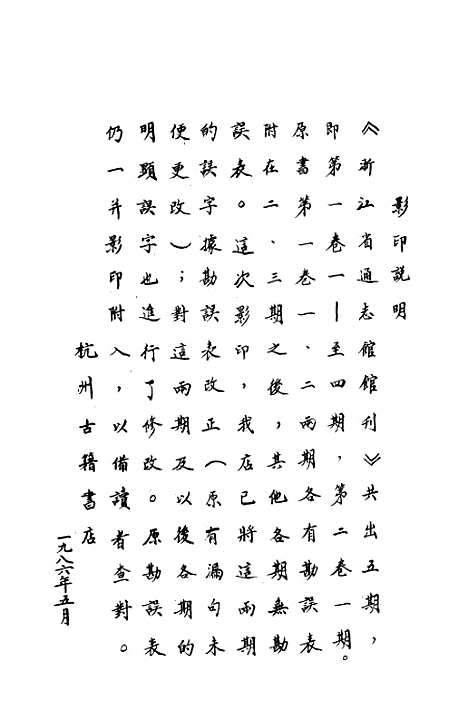 影印説明
《浙江省通志館館刊》共出五期，
即第一卷一—至四期，第二卷一期。
原書第一卷一、二兩期各有勘誤表
附在二、三期之後，其他各期無勘
誤表。這次影印，我店已將這兩期
的誤字據勘誤表改正（原有漏句未
便更改）；對這兩期及以後各期的
明顯誤字也進行了修改。原勘誤表
仍一并影印附入，以備讀者查對。
杭州古籍書店
一九八六年五月